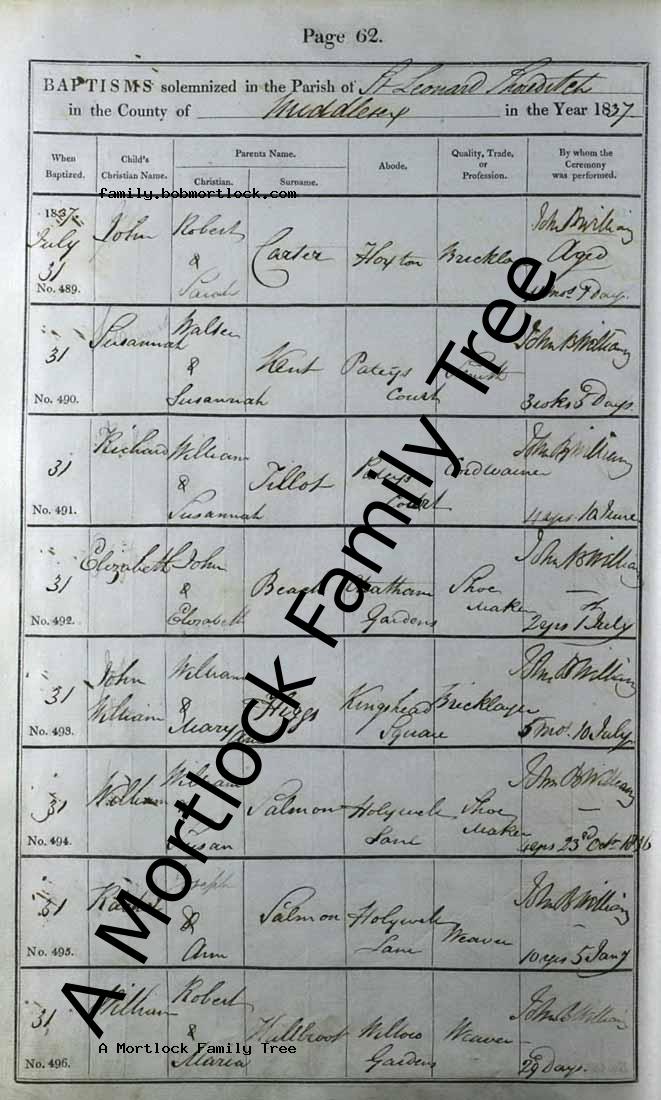 Page 62.
BAPTISMS solemnized in the Parish of St Leonard Shoreditch
in the County of Middlesex in the Year 1837
When Baptized. Child's Christian Name. Parents Name. Christian. Surname. Abode. Quality, Trade, or Profession. By whom the Ceremony was performed.
family.bobmortlock.com
1837 John Robert Carter Hoxton John B William
July & Aged
31 Sarah Days
No. 489.
31 Susannah Walter Kent Pateys John B William
& Court
No. 490. Susannah 3 wks 5 Days
31 Richard William Tillot Pateys Cordwainer John B William
& Court
No. 491. Susannah 4 yrs June
31 Elizabeth John Beach Chatham Shoe John B William
& Gardens Maker
No. 492. Elizabeth 2 yrs July
31 John William Higgs Kingshead Bricklayer John B William
William & Square
No. 493. Mary Ann 5 mos 10 July
31 William William Salmon Holywell Shoe John B William
Lane Maker
No. 494. Susan 23rd Oct 1836
31 Joseph Salmon Holywell Weaver John B William
& Lane
No. 495. Ann 10 yrs 5 Jany
31 William Robert Willow Weaver John B William
& Gardens
No. 496. Maria 29 Days.
A Mortlock Family Tree
A Mortlock Family Tree